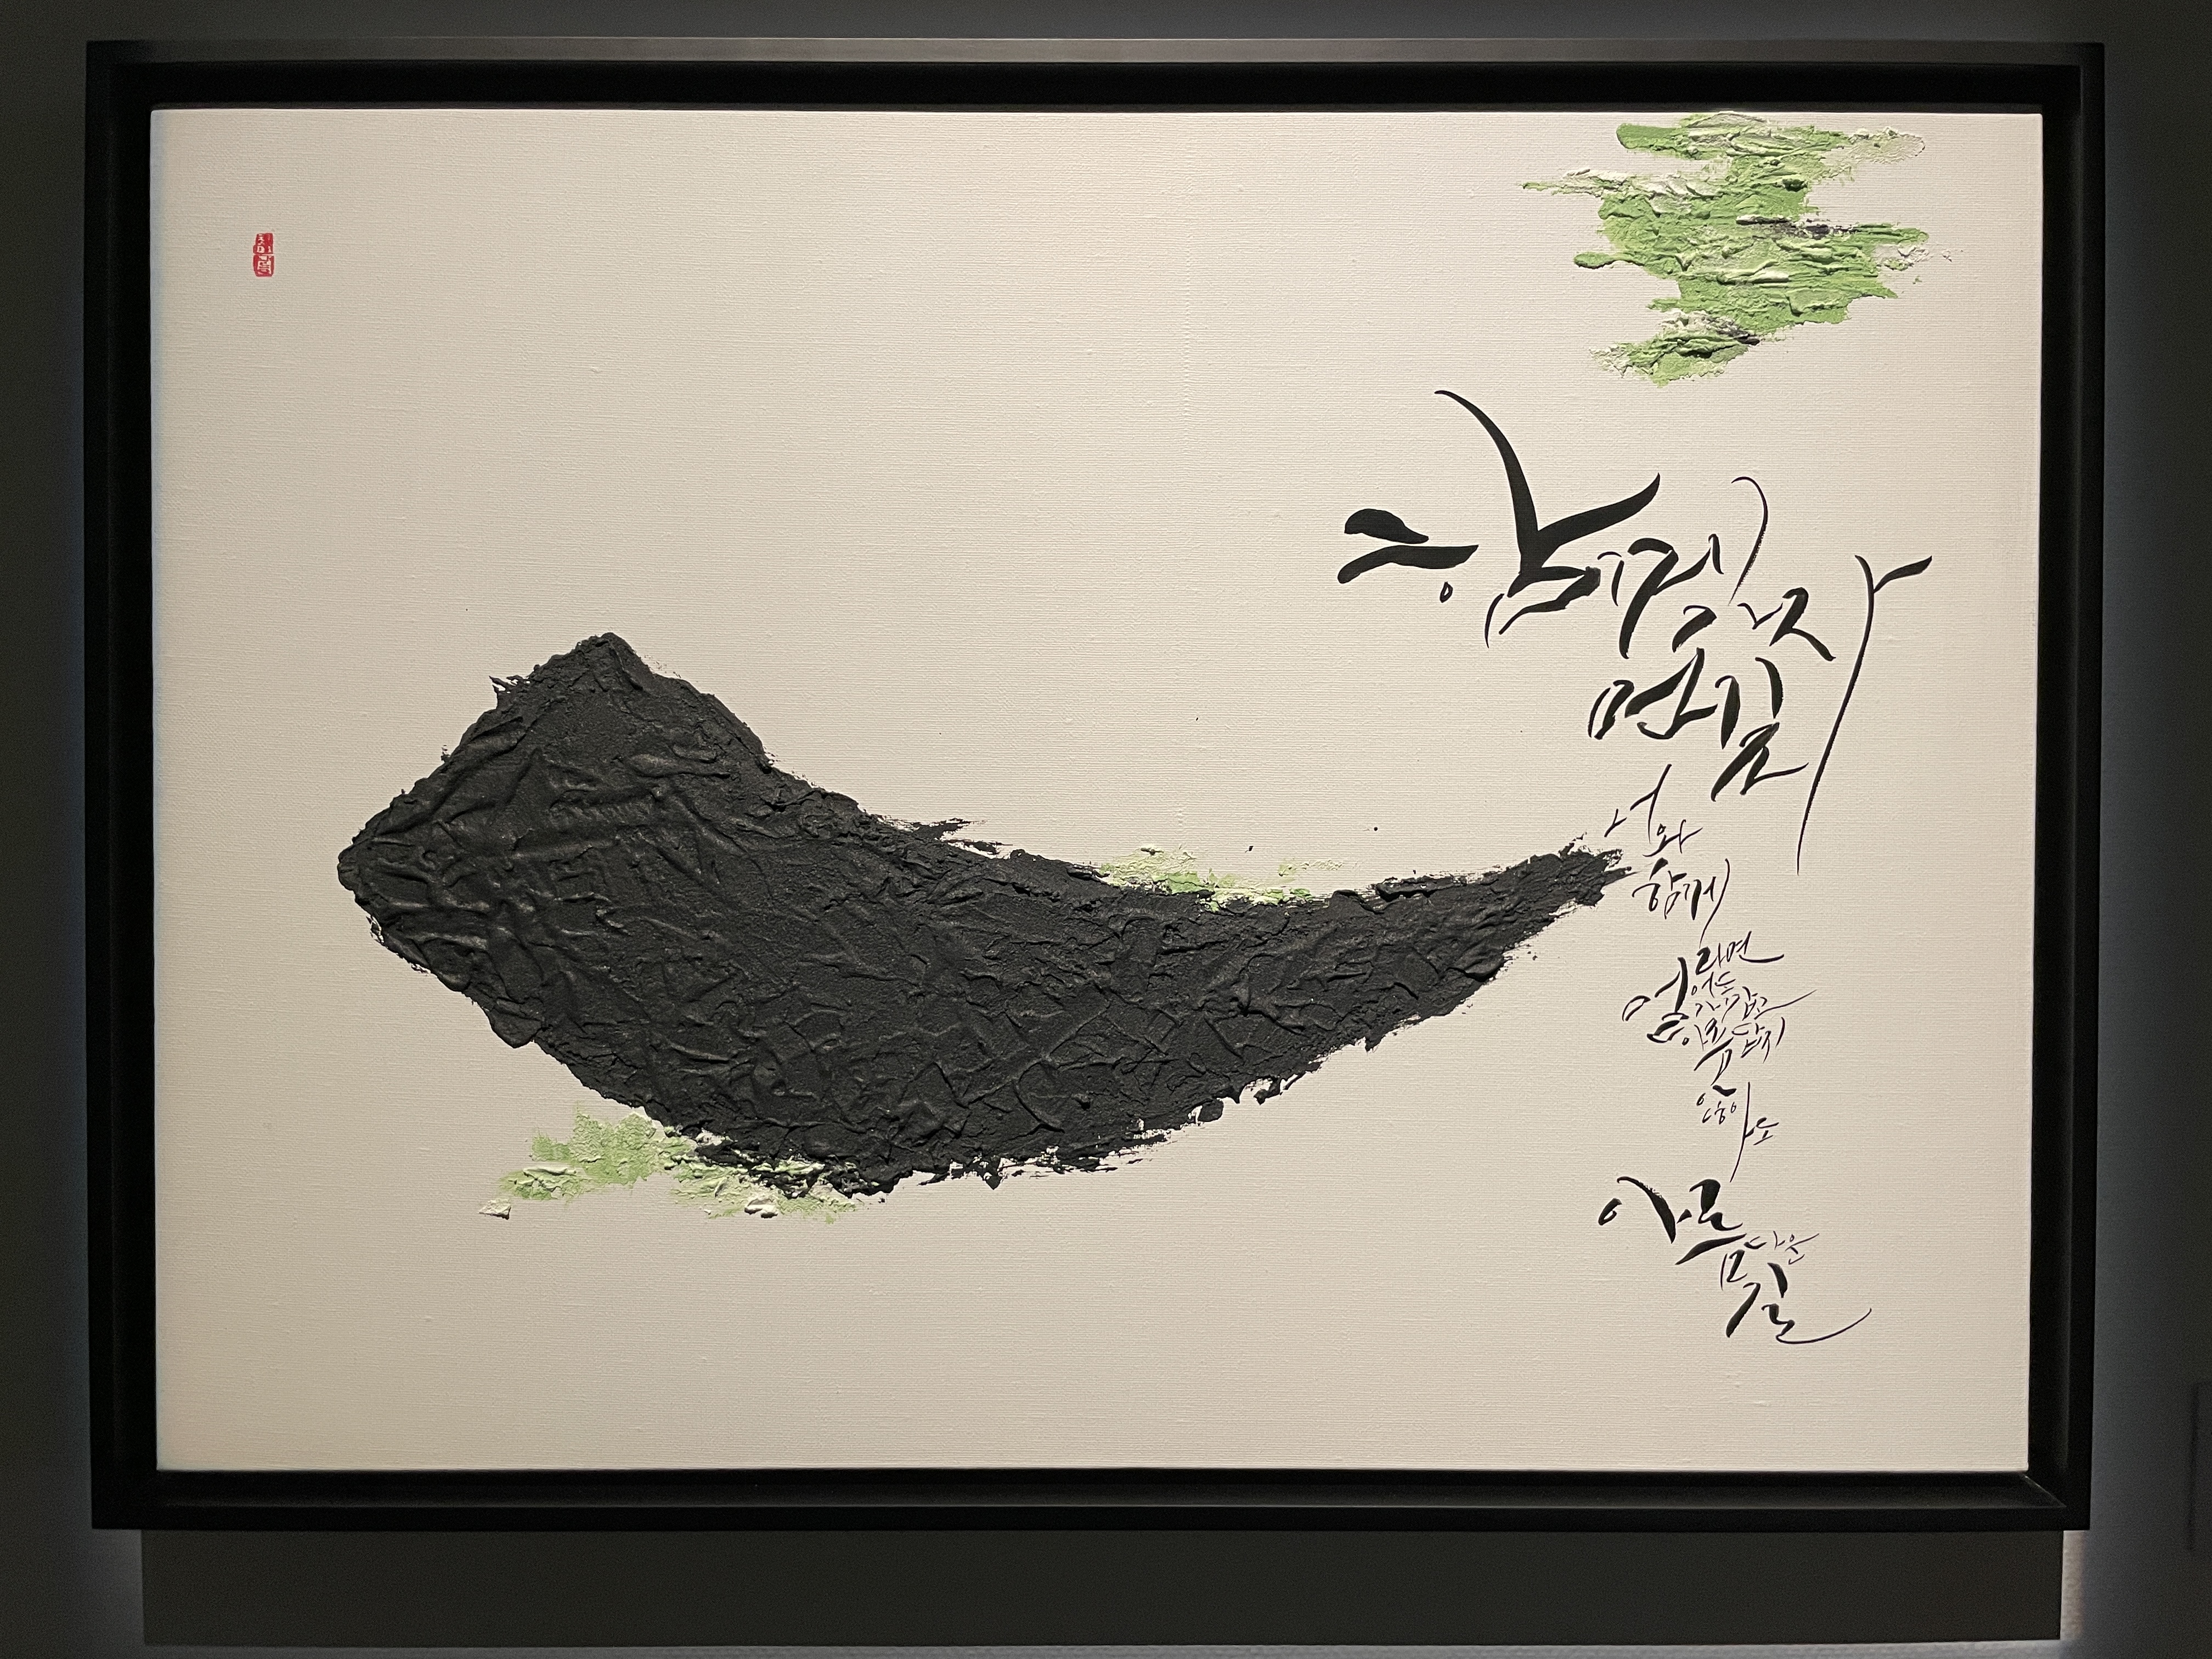 함께 가자
먼길
너와
함께
라면
멀어도
가깝고
아름답지
않아도
아름다운
길